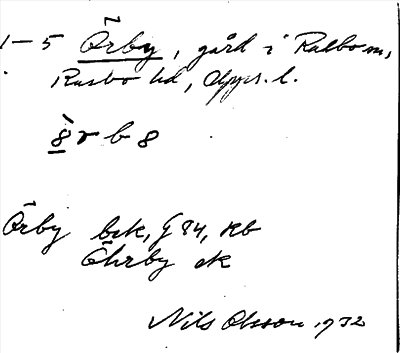 1-5 Örby, gård i Rasbo sn,
Rasbo hd, Upps. l.
8 r b 8
Örby bek, G 84, Kb
Öhrby ek
Nils Olsson 1932